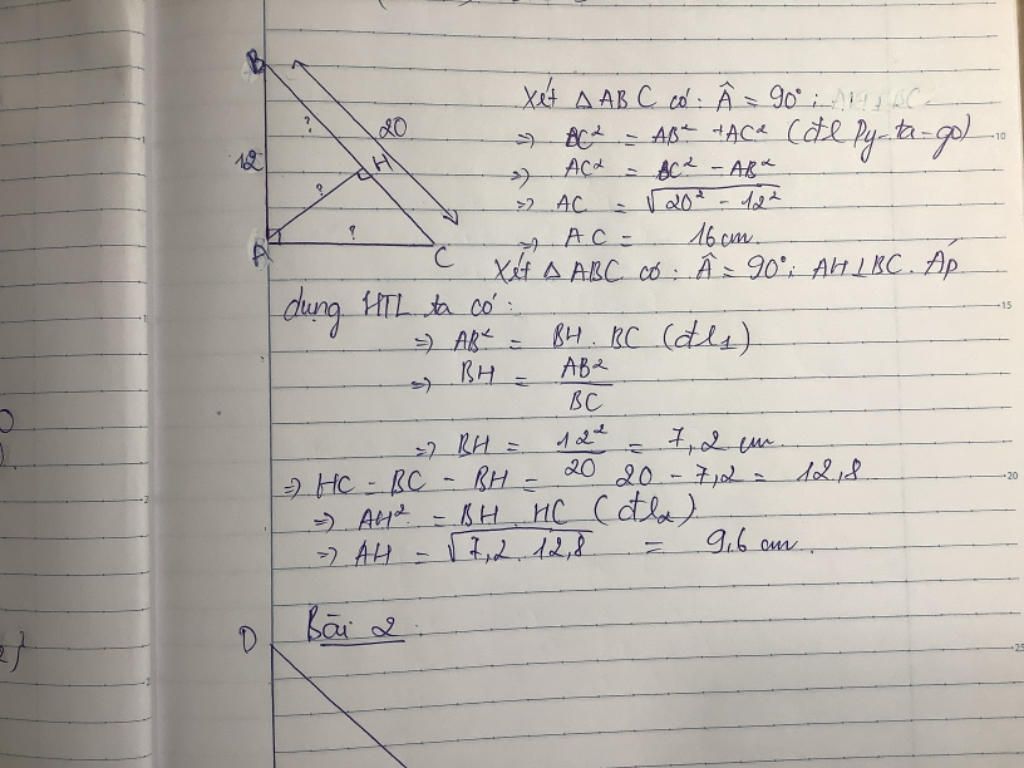 B
20
?
12
H
?
A
?
C
Xét △ABC có: Â = 90°;
=> BC² = AB² + AC² (đl Py-ta-go)
=> AC² = BC² - AB²
=> AC = √20² - 12²
=> AC = 16 cm.
Xét △ABC có: Â = 90°; AH⊥BC. Áp
dụng HTL ta có:
=> AB² = BH . BC (đl₁)
=> BH = AB²/BC
=> BH = 12²/20 = 7,2 cm
=> HC = BC - BH = 20 - 7,2 = 12,8
=> AH² = BH . HC (đl₂)
=> AH = √7,2 . 12,8 = 9,6 cm.
Bài 2
D
10
15
20
25